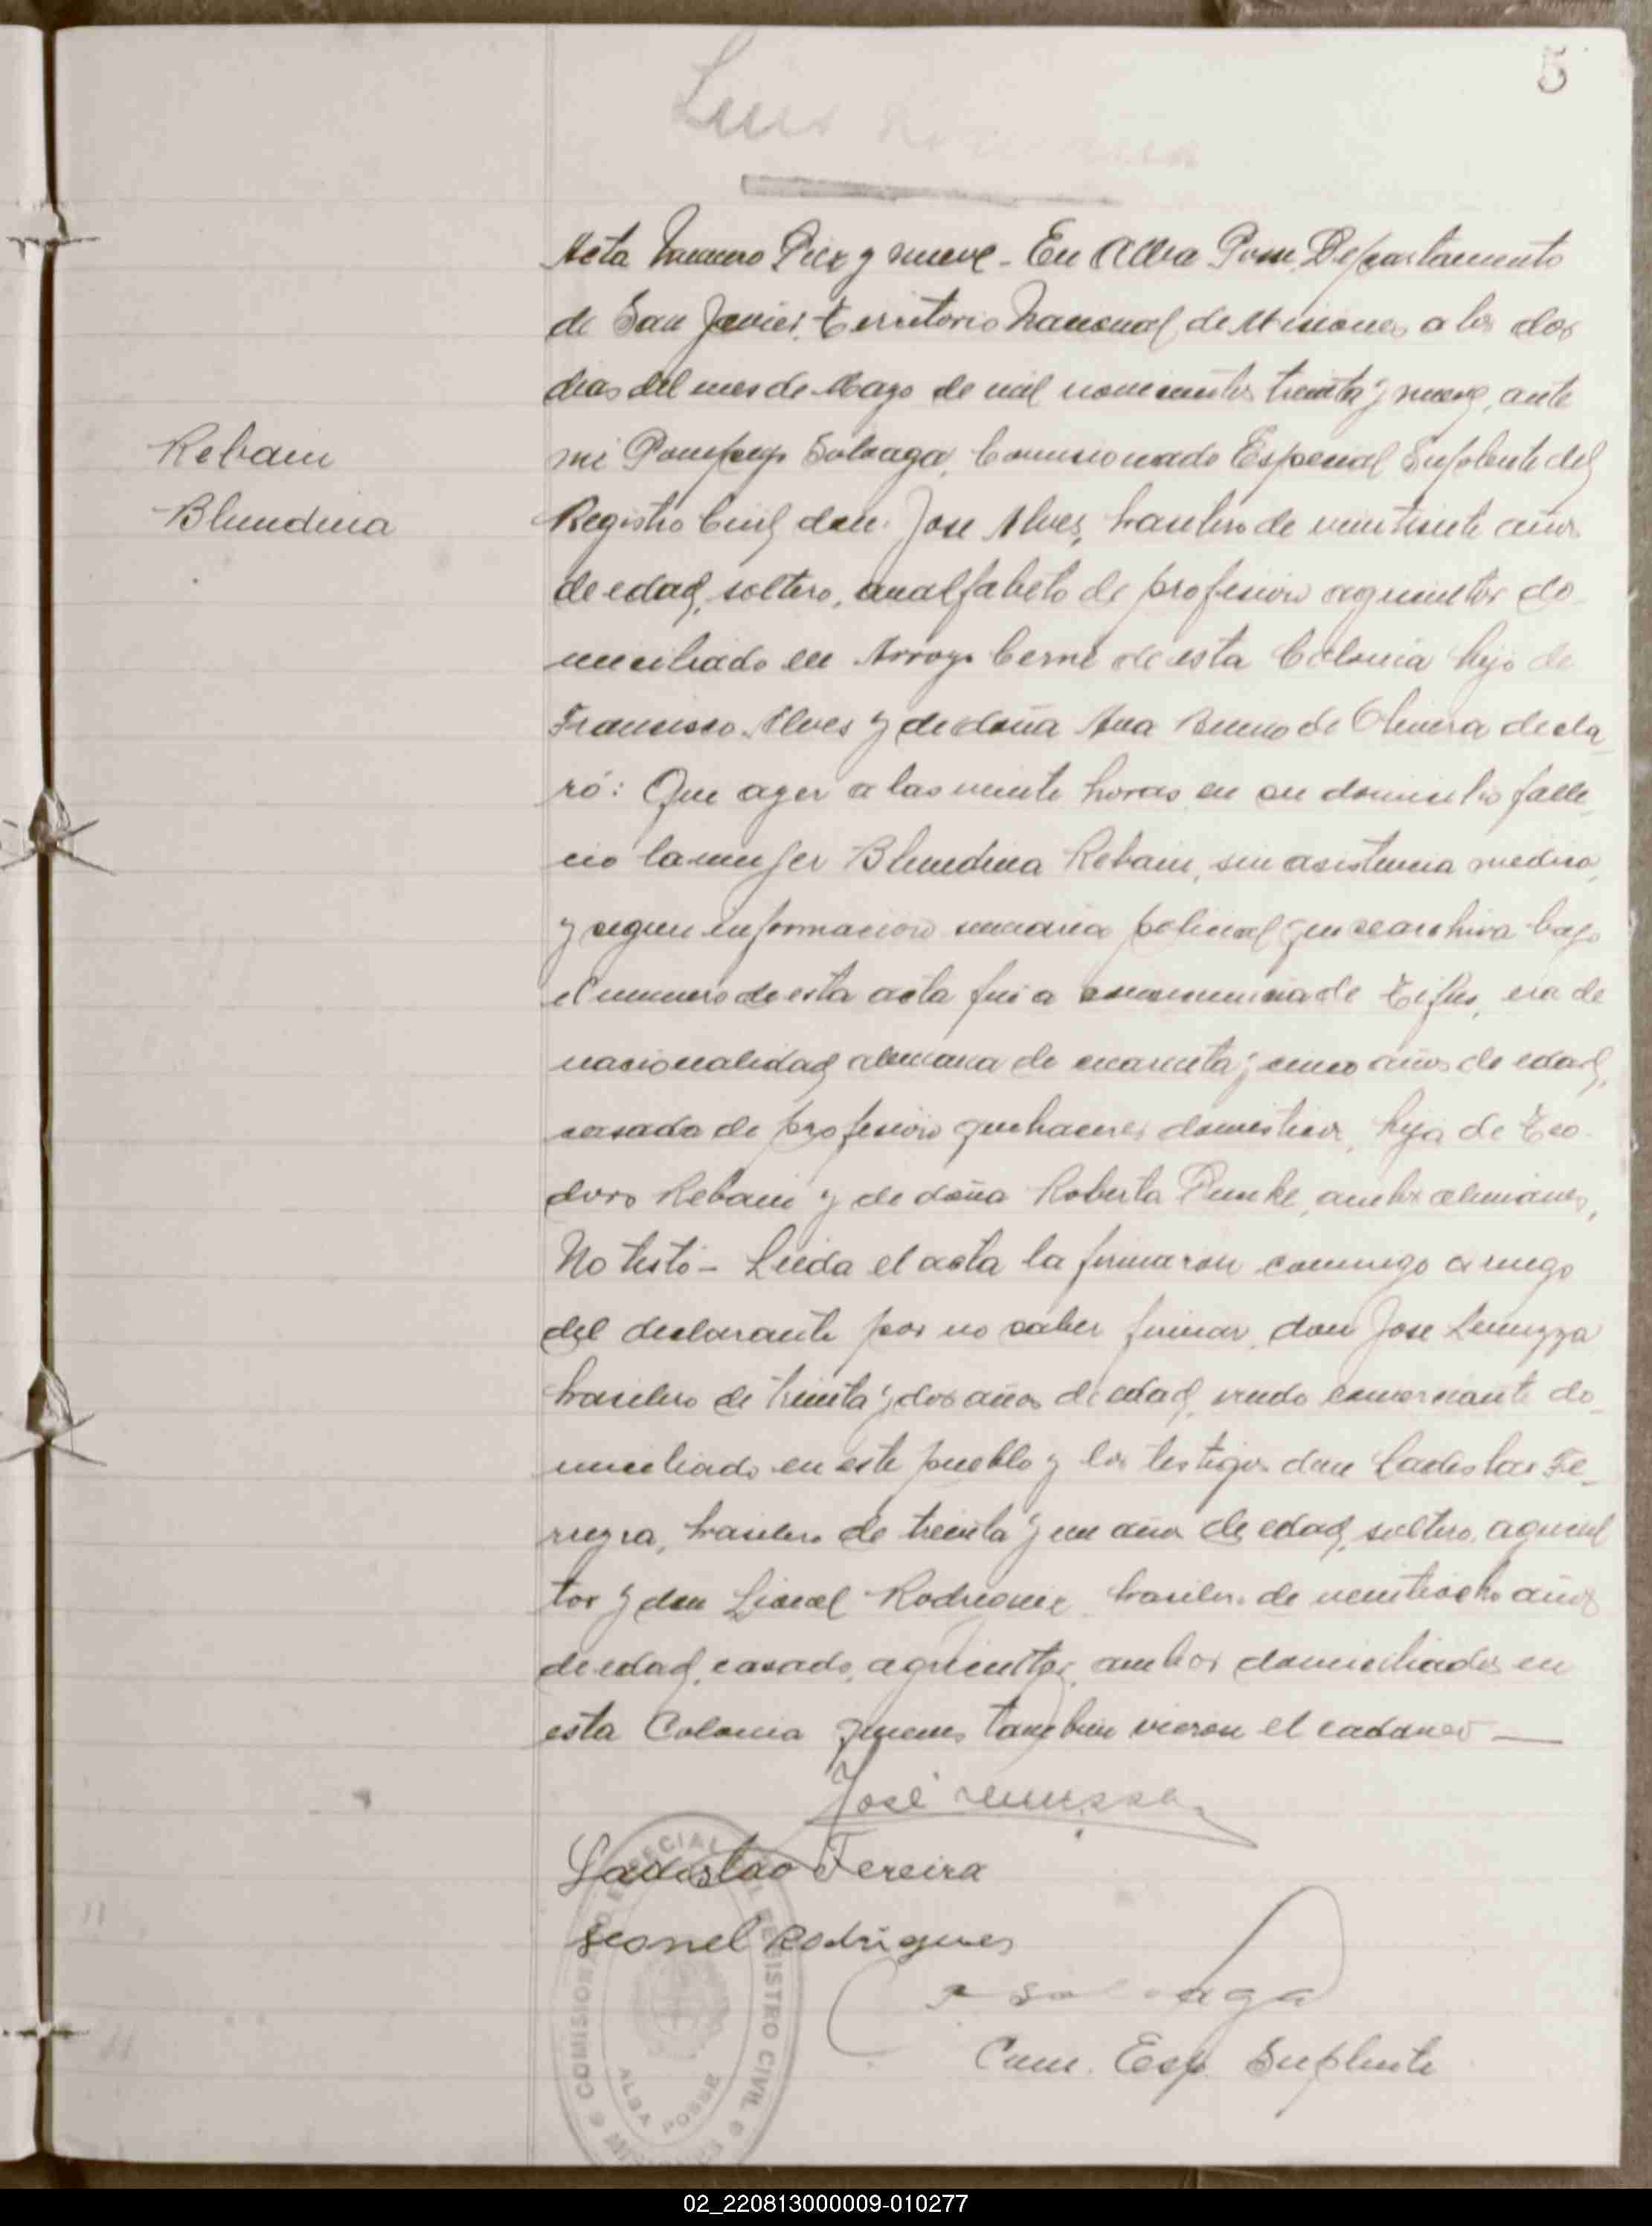 5
Luis
Acta Numero Diez y nueve - En Alba Posse, Departamento
de San Javier, Territorio Nacional de Misiones a los dos
dias del mes de Mayo de mil novecientos treinta y nueve, ante
mi Pompeyo Solaaga, Comisionado Especial Suplente del
Rebain
Blundina
Registro Civil don Jose Alves, brasilero de veintisiete años
de edad, soltero, analfabeto de profesion agricultor do-
miciliado en Arroyo Cerne de esta Colonia hijo de
Francisco Alves y de doña Ana Bueno de Olivera decla
ró: Que ayer a las veinte horas en su domicilio falle
cio la mujer Blundina Rebain, sin asistencia medica,
y segun informacion sumaria policial que se archiva bajo
el numero de esta acta fué a consecuencia de Tifus, era de
nacionalidad alemana de cuarenta y cinco años de edad,
casada de profesion quehaceres domesticos, hija de Teo-
doro Rebain y de doña Roberta, ambos alemanes,
No testó - Leida el acta la firmaron conmigo a ruego
del declarante por no saber firmar, don Jose Lemuzza
brasilero de treinta y dos años de edad, viudo comerciante do-
miciliado en este pueblo y los testigos don Ladislao Fe-
reyra, brasilero de treinta y un años de edad, soltero, agricul
tor y don Lionel Rodriguez brasilero de veintiocho años
de edad, casado, agricultor, ambos domiciliados en
esta Colonia quienes tambien vieron el cadaver —
José
Ladislao Fereira
Leonel Rodrigues
Com. Esp. Suplente
COMISIONADO ESPECIAL DEL REGISTRO CIVIL
ALBA POSSE
MISIONES
02_220813000009-010277